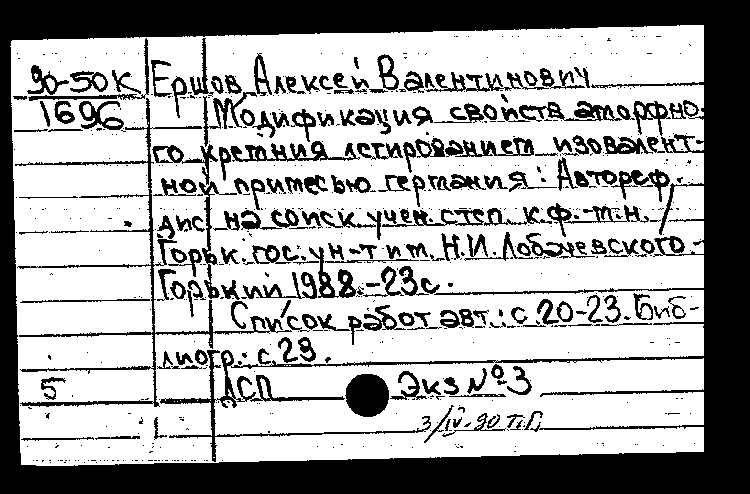 90-50К Ершов, Алексей Валентинович
1696 Модификация свойств аморфно-
го кремния легированием изовалент-
ной примесью германия: Автореф.
дис. на соиск. учен. степ. к.ф.-м.н. /
Горьк. гос. ун-т им. Н.И. Лобачевского.-
Горький 1988.-23с.
Список работ авт.: с.20-23. Биб-
лиогр.: с.23.
5 ДСП Экз №3
3/IV-90